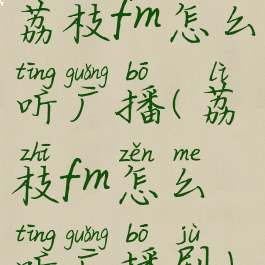 荔枝fm怎么
tīng guǎng bō lì
听广播(荔
zhī zěn me
枝fm怎么
tīng guǎng bō jù
听广播剧)